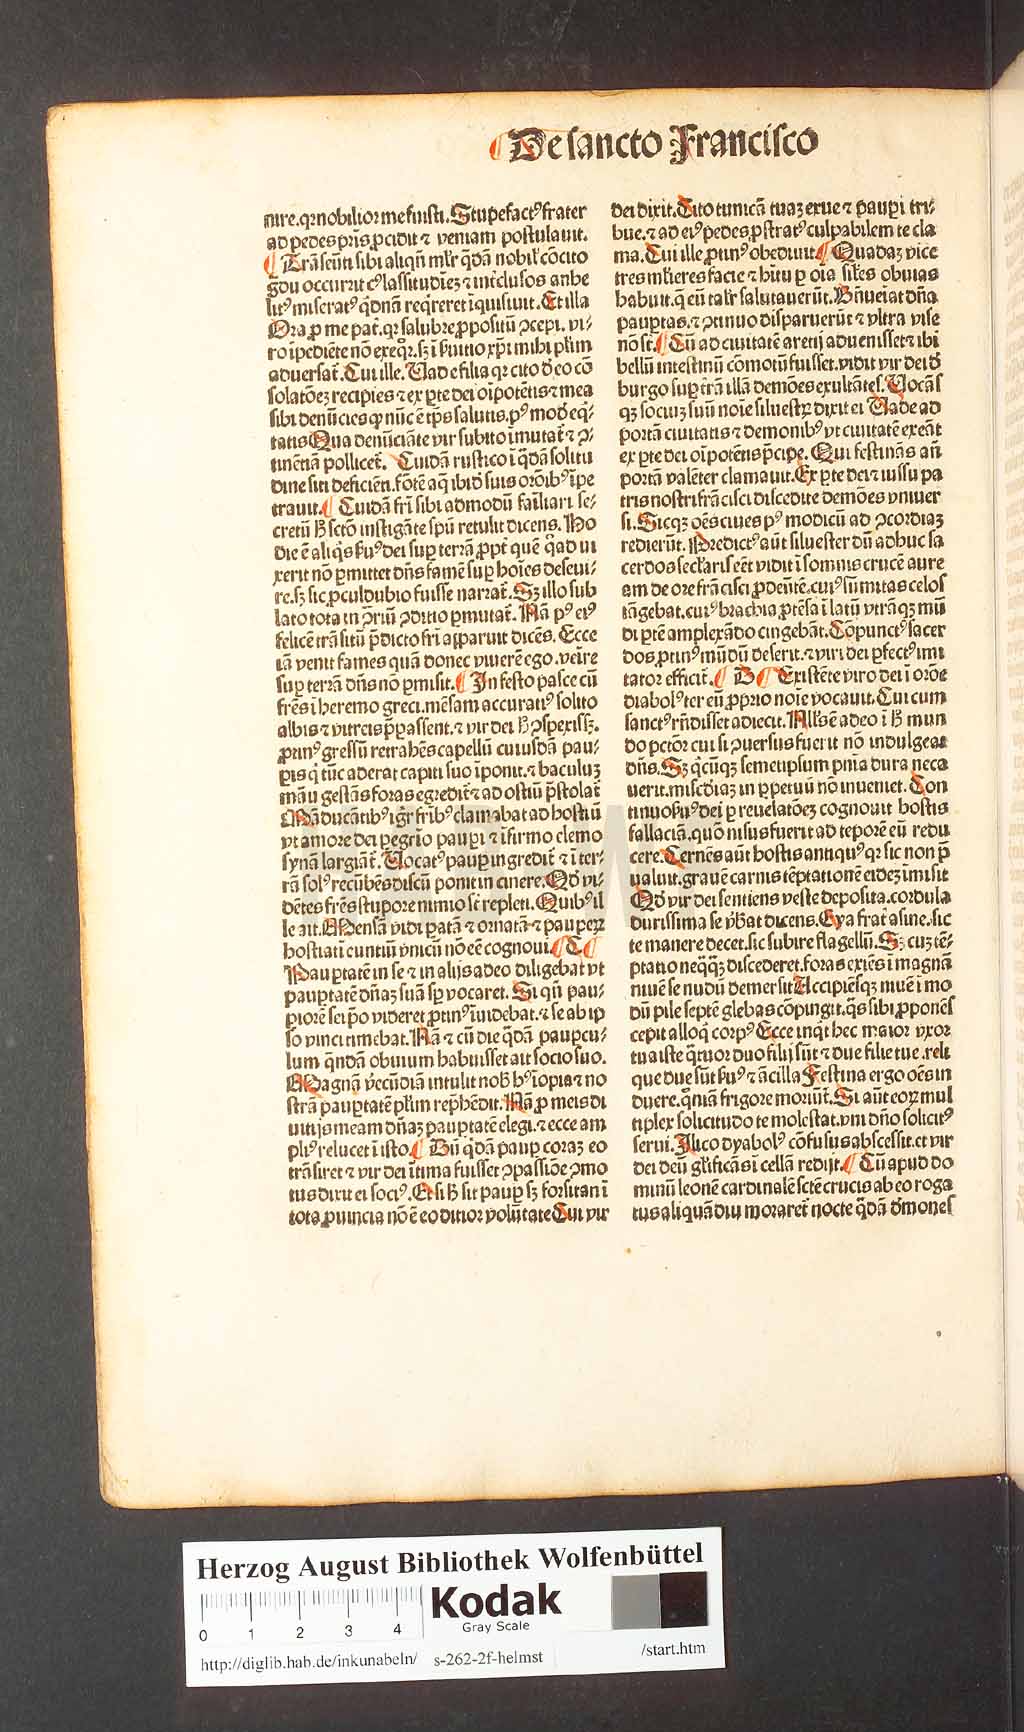 De sancto Francisco
nire. qꝛ nobilioꝛ me fuisti. Stupefactꝰ frater
ad pedes pr̄is ꝓcidit ⁊ veniam postulauit.
Trāseūti sibi aliqn̄ mlʼr q̄dā nobilʼr cōcito
gͣdu occurrit cꝰ lassitudīez ⁊ intʼclusos anhe
litꝰ miseratꝰ qͥdnā reqͥreret iquisiuit. Et illa
Ora ꝓ me pat̄. qꝛ salubre ꝓpositū ꝯcepi. vi⸗
ro īpediēte nō exeqͦꝛ. sꝫ ī ẜuitio xp̄i mihi plʼim
aduersat̄. Cui ille. Uade filia qꝛ cito d̓ eo cō
solatōez recipies ⁊ ex ꝑte dei oīpotētis ⁊ mea
sibi denūcies ꝙ nūc ē tp̄s salutis. pꝰ mod̓ eq̄⸗
tatis Qua denūciāte vir subito īmutat̄ ⁊ ꝯ⸗
tinētiā pollicet̄. Cuidā rustico ī q̄dā solitu
dine siti deficiēti. fōtē aq̄ ibid̓ suis orōibꝰ īpe
trauit. Cuidā fr̄i sibi admodū familiari se⸗
cretū ħ sctō instigāte spū retulit dicens. Ho
die ē aliqͥs ẜuꝰ dei suꝑ terrā ꝓpt̓ quē qͣad ui
xerit nō ꝑmittet dn̄s famē suꝑ hoīes deseui⸗
re. sꝫ sic ꝓculdubio fuisse narrat̄. Sꝫ illo sub
lato tota in ꝯriū ꝯditio ꝑmutat̄. Nā pꝰ eiꝰ
felicē trāsitū p̄dicto fr̄i apparuit dicēs. Ecce
iā venit fames quā donec viuerē ego. venire
suꝑ terrā dn̄s nō ꝑmisit. In festo pasce cū
frēs ī heremo greci. mēsam accuratiꝰ solito
albis ⁊ vitreis p̄passent. ⁊ vir dei ħ ꝯspexissꝫ.
ꝓtinꝰ gressū retrahēs capellū cuiusdā pau⸗
ꝑis qͥ tūc aderat capiti suo īponit. ⁊ baculuꝫ
māu gestās foras egredit̄ ⁊ ad ostiū p̄stolat̄
Māducātibꝰ igr̄ fr̄ibꝰ clamabat ad hostiū
vt amore dei ꝑegrīo pauꝑi ⁊ īfirmo elemo
synā largiāt̄. Uocatꝰ pauꝑ ingredit̄ ⁊ i ter⸗
rā solꝰ recūbēs discū ponit in cinere. Qd̓ vi⸗
dētes frēs stupore nimio st̄ repleti. Quibꝰ il
le ait. Mensā vidi patā ⁊ ornatā ⁊ pauꝑeꝝ
hostiati cuntiū vnicū nō eē cognoui. C
Pauꝑtatē in se ⁊ in alijs adeo diligebat vt
pauꝑtatē dn̄aꝫ suā sꝑ vocaret. Si qn̄ pau⸗
ꝑiorē seip̄o videret ꝓtinꝰ īuidebat. ⁊ se ab ip̄
so vinci timebat. Nā ⁊ cū die q̄dā pauꝑcu⸗
lum qͥndā obuium habuisset ait socio suo.
Magnā v̓ecūdiā intulit nob̄ hꝰ īopia ⁊ no
strā pauꝑtatē plʼim rep̄hēdit. Nā ꝓ meis di
uitijs meam dn̄aꝫ pauꝑtatē elegi. ⁊ ecce am
pliꝰ relucet ī isto. Cū qͥdā pauꝑ coraꝫ eo
trāsiret ⁊ vir dei ītima fuisset ꝯpassiōe ꝯmo
tus dixit ei sociꝰ. Etsi ħ sit pauꝑ sꝫ forsitan ī
tota ꝓuincia nō ē eo ditior volūtate Cui vir
dei dixit. Cito tunicā tuaꝫ exue ⁊ pauꝑi tri⸗
bue. ⁊ ad eiꝰ pedes ꝓstratꝰ culpabilem te cla
ma. Cui ille ꝓtinꝰ obediuit. Quadaꝫ vice
tres mlʼieres facie ⁊ hītu ꝑ oīa sil̓es obuias
habuit. q̄ eū talr̓ salutauerūt. Bn̄ueīat dn̄a
pauꝑtas. ⁊ ꝯtinuo disparuerūt ⁊ vltra vise
nō st̄. Cū ad ciuitatē aretij aduenisset ⁊ ibi
bellū intestinū cōmotū fuisset. vidit vir dei d̓
burgo suꝑ trā illā demōes exultātes. Uocās
qꝫ sociuꝫ suū noīe siluestrꝫ dixit ei Uade ad
portā ciuitatis ⁊ demonibꝰ vt ciuitatē exeāt
ex ꝑte dei oīpotētis p̄cipe. Qui festināꝭ an̄
portā valēter clamauit. Ex ꝑte dei ⁊ iussu pa
tris nostri frācisci discedite demōes vniuer
si. Sicqꝫ oēs ciues pꝰ modicū ad ꝯcordiaꝫ
redierūt. Predictꝰ aūt siluester dū adhuc sa
cerdos sec̓larīs eēt vidit ī somnis crucē aure
am de ore frācisci ꝓdeūtē. cuiꝰ sūmitas celos
tāgebat. cuiꝰ brachia ꝓtēsa ī latū vtrāqꝫ mū
di ptē amplexādo cingebāt. Cōpunctꝰ sacer
dos ꝓtinꝰ mūdū deserit. ⁊ viri dei ꝑfectꝰ imi
tator efficit̄. B Existēte viro dei ī orōe
diabolꝰ ter eū ꝓprio noīe vocauit. Cui cum
sanctꝰ rn̄disset adiecit. Nullꝰ ē adeo ī ħ mun
do pctōꝛ cui si ꝯuersus fuerit nō indulgeat
dn̄s. Sꝫ qͥcūqꝫ semetipsum pn̄ia dura neca
uerit. miscd̓iaꝫ in ꝑpetuū nō inueniet. Con
tinuo ẜuꝰ dei ꝑ reuelatōeꝫ cognouit hostis
fallaciā. quō nisus fuerit ad teporē eū redu
cere. Cernēs aūt hostis antiquꝰ qꝛ sic non p̄
ualuit. grauē carnis tēptationē eideꝫ īmisit
Qd̓ vir dei sentiens veste deposita. cordula
durissima se v̓bat dicens. Eya frat̓ asine. sic
te manere decet. sic subire flagellū. Sꝫ cuꝫ tē⸗
ptatio neq̄qͣꝫ discederet. foras exiēs ī magnā
niuē se nudū demersit Accipiēsqꝫ niuē ī mo
dū pile septē glebas cōpingit. qͣs sibi ꝓponēs
cepit alloqͥ corpꝰ Ecce inqͥt hec maior vxor
tua iste qͣtuor duo filij sūt ⁊ due filie tue. reli
que due sūt ẜuꝰ ⁊ ācilla Festina ergo oēs in
duere. qm̄ia frigore moriūt̄. Si aūt eoꝝ mul
tiplex solicitudo te molestat. vni dn̄o solicitꝰ
serui. Ilico dyabolꝰ cōfusus abscessit. et vir
dei deū glʼificās ī cellā redijt. Cū apud do
minū leonē cardinalē sctē crucis ab eo roga
tus aliquādiu moraret̄ nocte q̄dā d̓mones
Herzog August Bibliothek Wolfenbüttel
Kodak
Gray Scale
0 1 2 3 4
http://diglib.hab.de/inkunabeln/ s-262-2f-helmst /start.htm